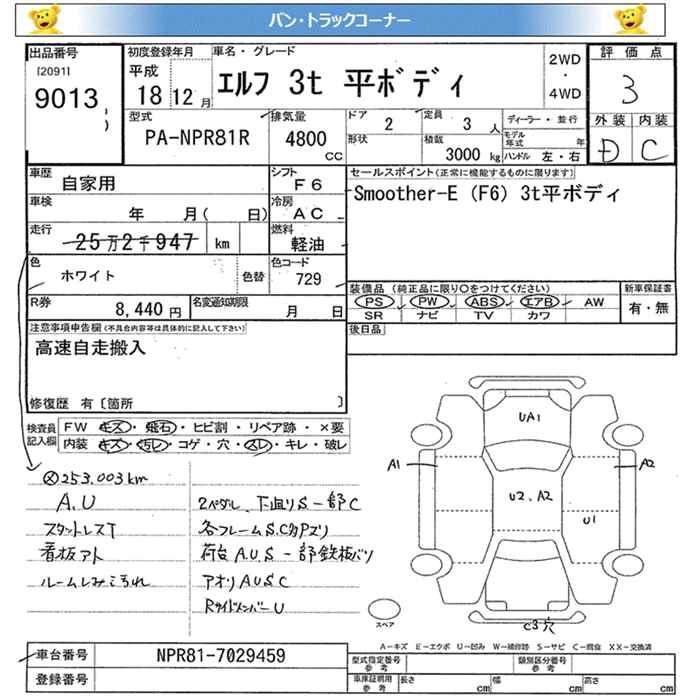 バン・トラックコーナー
出品番号
[2091]
9013
初度登録年月
平成
18 12 月
車名・グレード
エルフ 3t 平ボディ
2WD
・
4WD
評価点
3
外装 内装
D C
型式
PA-NPR81R
排気量
4800
cc
ドア
2
定員
3 人
形状
積載
3000 kg
ディーラー・並行
モデル年式 年
ハンドル 左・右
車歴
自家用
シフト
F6
車検
年 月( 日)
冷房
AC
走行
25万2千947 km
燃料
軽油
色
ホワイト
色替
色コード
729
R券
8,440 円
名変通知期限
月 日
セールスポイント(正常に機能するものに限ります)
Smoother-E (F6) 3t平ボディ
装備品 (純正品に限り〇をつけてください)
PS PW ABS エアB AW
SR ナビ TV カワ
新車保証書
有・無
後日品
注意事項申告欄(不具合内容等は具体的に記入して下さい)
高速自走搬入
修復歴 有〔箇所 〕
検査員記入欄
FW キズ・飛石・ヒビ割・リペア跡・×要
内装 キズ・汚レ・コゲ・穴・スレ・キレ・破レ
253.003km
A.U
スタットレスT
看板アト
ルームしみこられ
2ペダル、下廻りS一部C
各フレームS.C匁Pズリ
荷台A.U.S一部鉄板バリ
アオリAUSC
RサイドメンバーU
UA1
A1
A2
U2、A2
U1
スペア
C3穴
A－キズ E－エクボ U－凹み W－補修跡 S－サビ C－腐食 XX－交換済
車台番号
NPR81-7029459
登録番号
型式指定番号
参考
類別区分番号
参考
車庫証明用
参考
長さ cm 幅 cm 高さ cm